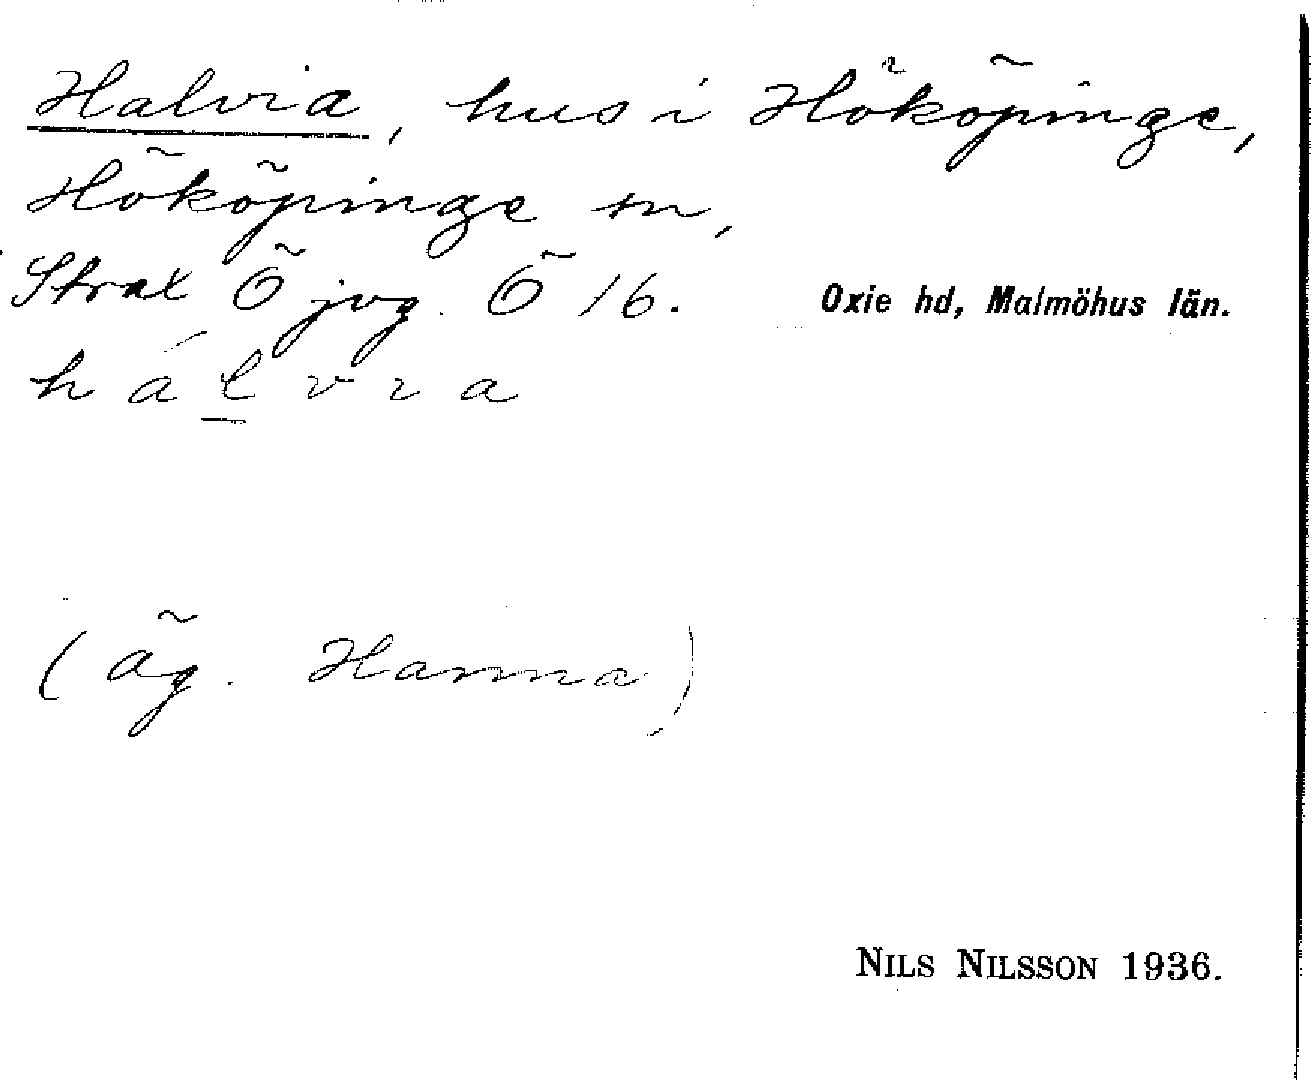 Halvia, hus i Hököpinge,
Hököpinge sn,
Strax Ö jvg. Ö 16.
Oxie hd, Malmöhus län.
h á l v ı a
(äg. Hanna)
NILS NILSSON 1936.